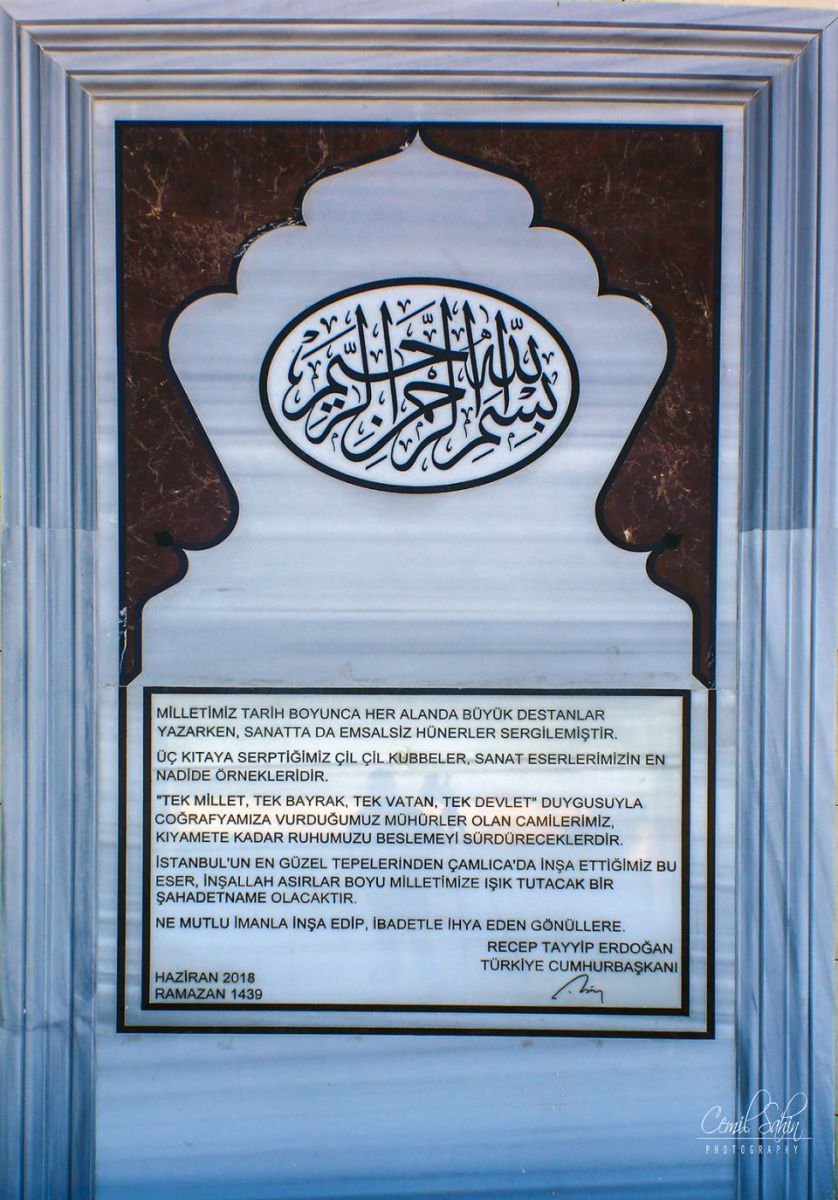 بِسْمِ اللّٰهِ الرَّحْمٰنِ الرَّحِيْمِ
MİLLETİMİZ TARİH BOYUNCA HER ALANDA BÜYÜK DESTANLAR
YAZARKEN, SANATTA DA EMSALSİZ HÜNERLER SERGİLEMİŞTİR.
ÜÇ KITAYA SERPTİĞİMİZ ÇİL ÇİL KUBBELER, SANAT ESERLERİMİZİN EN
NADİDE ÖRNEKLERİDİR.
"TEK MİLLET, TEK BAYRAK, TEK VATAN, TEK DEVLET" DUYGUSUYLA
COĞRAFYAMIZA VURDUĞUMUZ MÜHÜRLER OLAN CAMİLERİMİZ,
KIYAMETE KADAR RUHUMUZU BESLEMEYİ SÜRDÜRECEKLERDİR.
İSTANBUL'UN EN GÜZEL TEPELERİNDEN ÇAMLICA'DA İNŞA ETTİĞİMİZ BU
ESER, İNŞALLAH ASIRLAR BOYU MİLLETİMİZE IŞIK TUTACAK BİR
ŞAHADETNAME OLACAKTIR.
NE MUTLU İMANLA İNŞA EDİP, İBADETLE İHYA EDEN GÖNÜLLERE.
RECEP TAYYİP ERDOĞAN
TÜRKİYE CUMHURBAŞKANI
HAZİRAN 2018
RAMAZAN 1439
Cemil Sahin
PHOTOGRAPHY